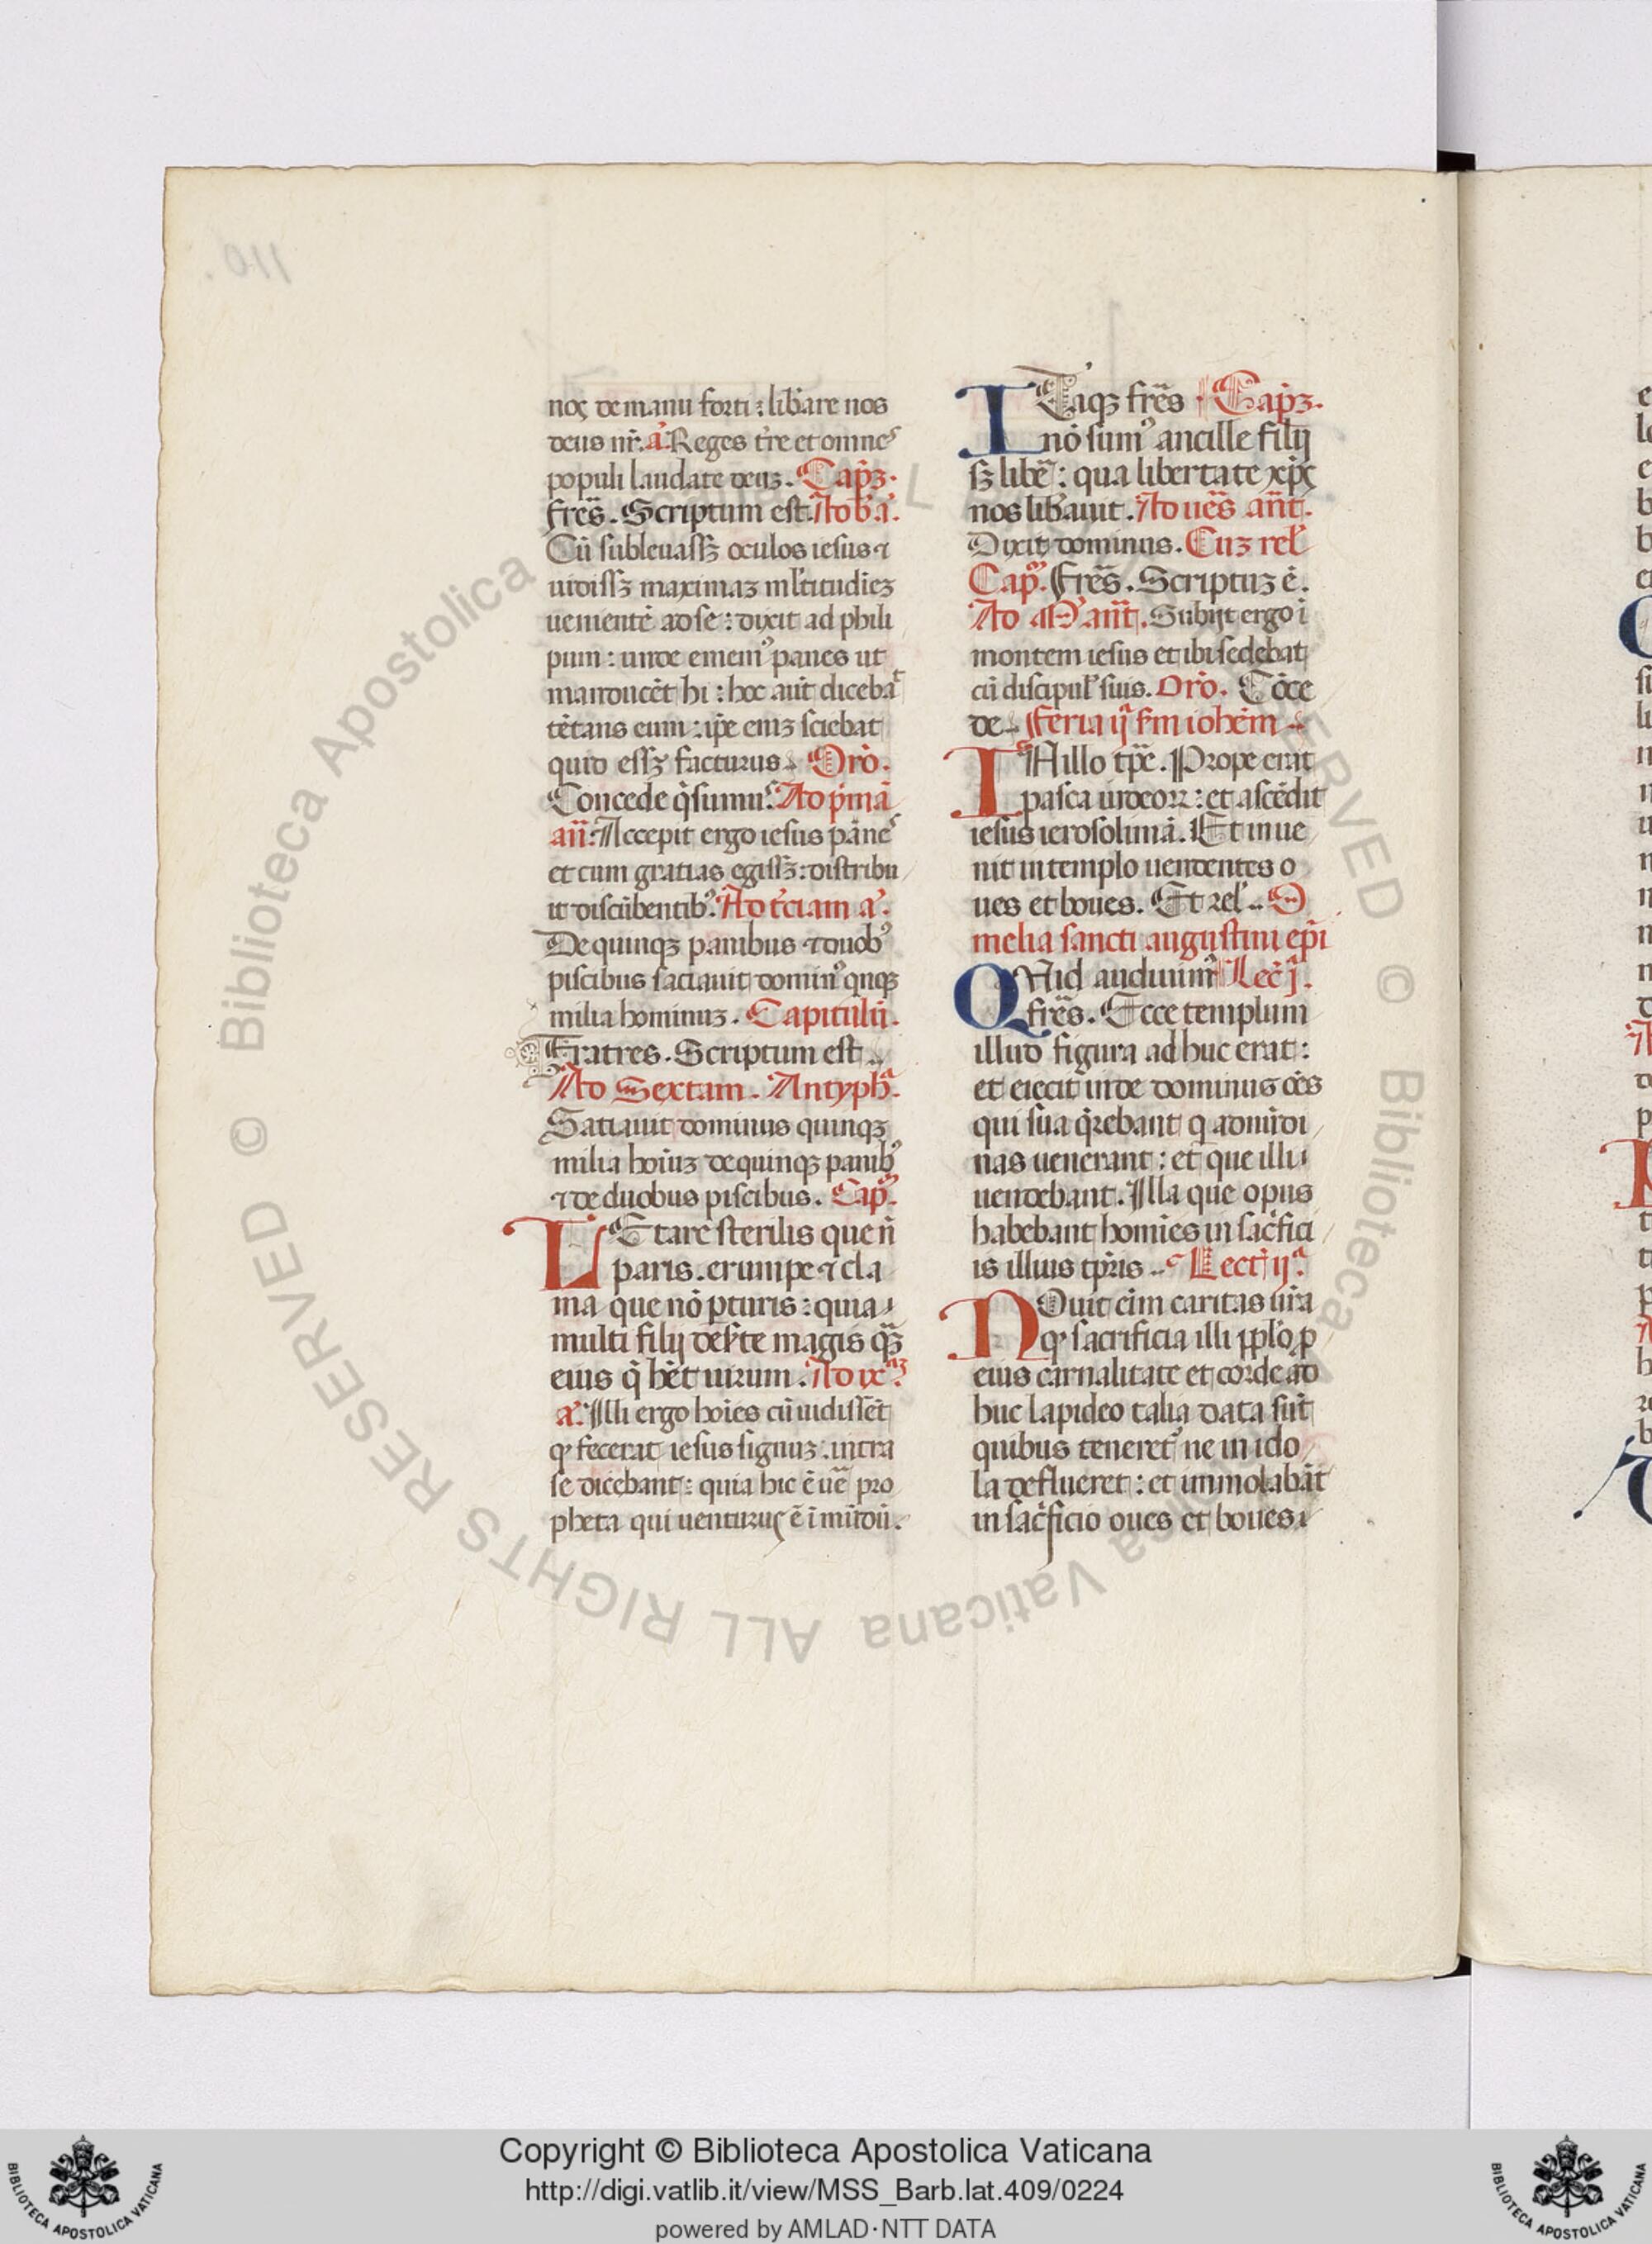 noς de manu forti : lib̄are nos
deus nr̄. a᷈. Reges t̄re et omnes
populi laudate deuꝫ. Cap̄ꝫ.
fr̄es. Scriptum est. Ad b̄. a᷈.
Cū subleuassꝫ oculos iesus ⁊
uidissꝫ maximaꝫ ml̄titudiēꝫ
uenientē ad se : dixit ad phili
pum : unde ememꝰ panes ut
manducēt hi : hoc aūt dicebat
tētans eum : ip̄e eniꝫ sciebat
quid essꝫ facturus. Or̄o.
Concede q̄sumus. Ad p̄mā
an̄. Accepit ergo iesus panes
et cum gratias egissꝫ : distribu
it discūbentibꝰ. Ad t̄ciam a᷈.
De quinqꝫ panibus ⁊ duobꝰ
piscibus saciauit dominꝰ qnqꝫ
milia hominuꝫ. Capitulū.
Fratres. Scriptum est.
Ad Sextam. Antyph̄a.
Satiauit dominus quinqꝫ
milia hoīuꝫ de quinqꝫ panibꝰ
⁊ de duobus piscibus. Cap̄m.
LEtare sterilis que n̄
paris. erumpe ⁊ cla
ma que nō ꝑturis : quia
multi filij des̄te magis qꝫ̄
eius q̄ hēt uirum. Ad ixaꝫ.
a᷈. Illi ergo hoīes cū uidissēt
qꝫ fecerat iesus signuꝫ : intra
se dicebant : quia hic ē ue᷈ pro
pheta qui uenturuς ē ī mūdū.
ITaqꝫ fr̄es Cap̄ꝫ.
nō sumꝰ ancille filij
sꝫ libe᷈ : qua libertate xp̄ς
nos lib̄auit. Ad ues̄ an̄t.
Dixit dominus. Cuꝫ rel̄
Cap̄m. Fr̄es. Scriptuꝫ ē.
Ad M᷈ an̄t. Subijt ergo ī
montem iesus et ibi sedebat
cū discipul̄ suis. Or̄o. Cōce
de. Feria ija s̄m ioh̄em
IN illo tp̄e. Prope erat
pasca iudeoꝝ : et ascēdit
iesus ierosolimā. Et inue
nit in templo uendentes o
ues et boues. Et rel̄. O
melia sancti augustini ep̄i
QUid audiuimꝰ Lec̄ j.
fr̄es. Ecce templum
illud figura ad huc erat :
et eiecit inde dominus oēs
qui sua q̄rebant q ad nūdi
nas uenerant : et que illi
uendebant. Illa que opus
habebant homīes in sac̄fici
is illius tp̄ris. Lect̄ ija.
NOuit eīm caritas ur̄a
qꝫ sacrificia illi pp̄lo ꝓ
eius carnalitate et corde ad
huc lapideo talia data sūt
quibus teneretꝰ ne in ido
la deflueret : et immolabāt
in sac̄ficio oues et boues
Copyright © Biblioteca Apostolica Vaticana
http://digi.vatlib.it/view/MSS_Barb.lat.409/0224
powered by AMLAD·NTT DATA